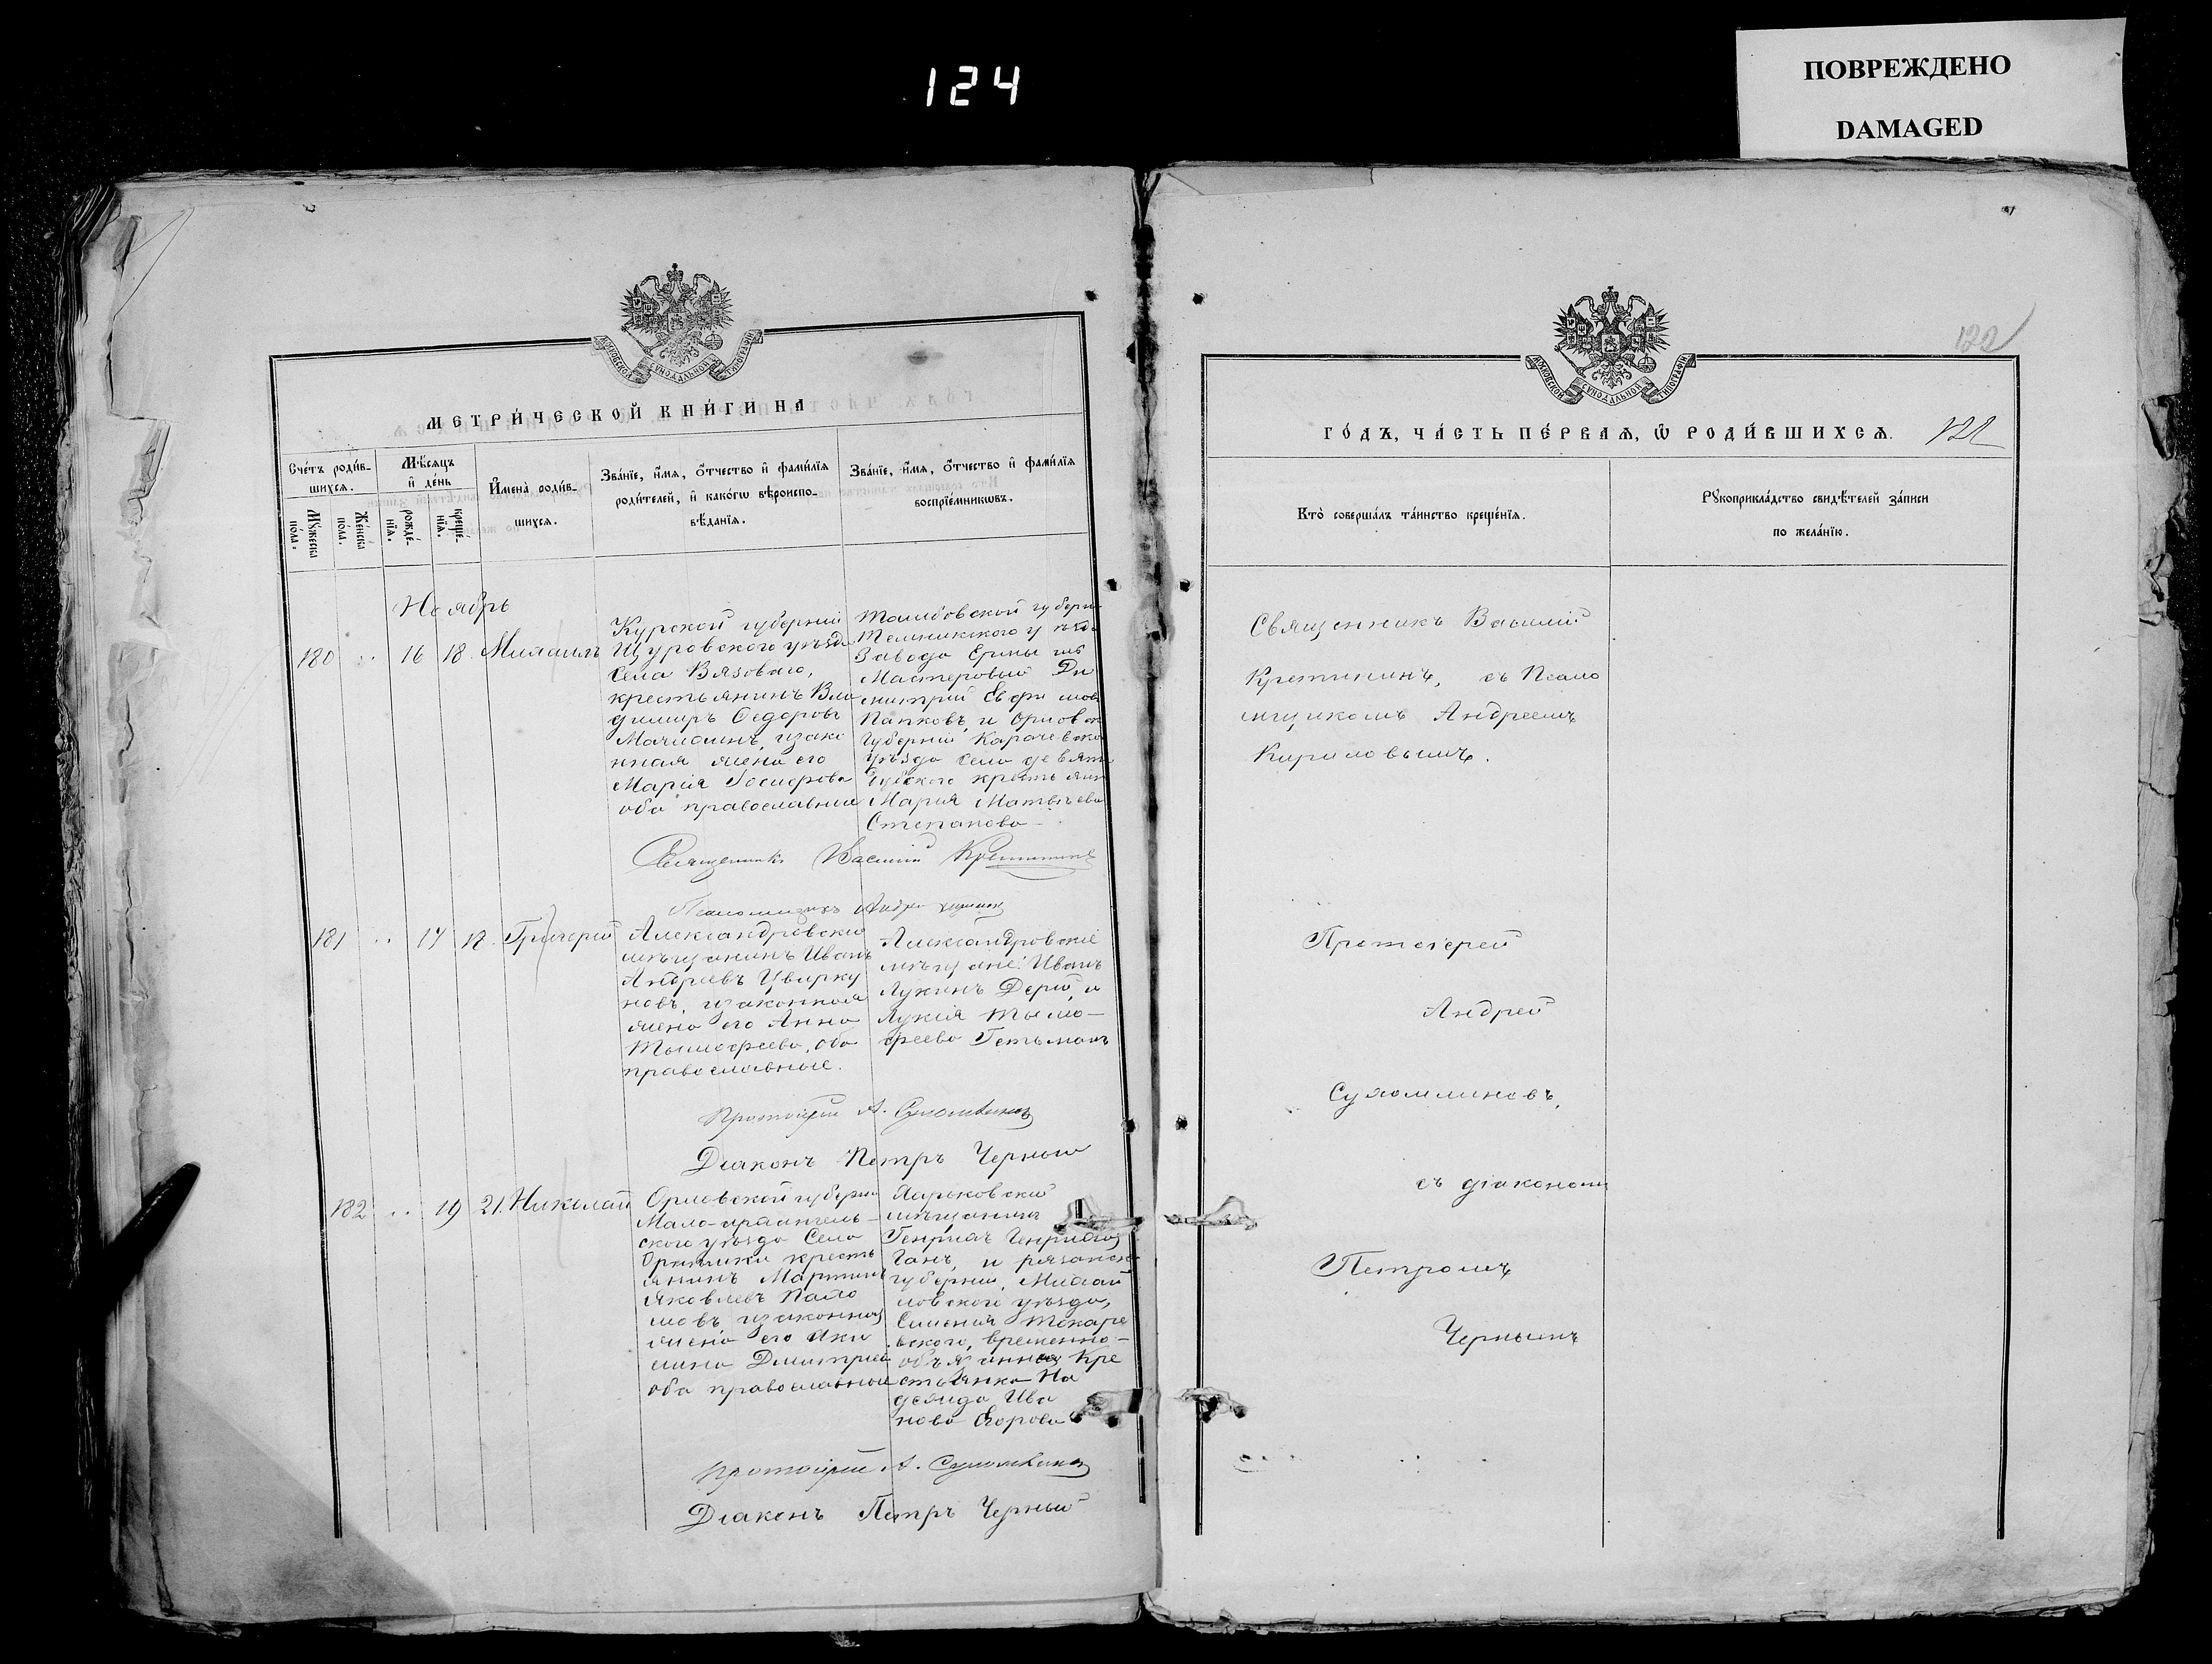 124
ПОВРЕЖДЕНО
DAMAGED
МЕТРИ́ЧЕСКОЙ КНИ́ГИ НА
Сче́тъ роди́в-
шихся.
Мѣ́сяцъ
и҆ де́нь
И҆мена̀ роди́в-
шихся.
Зва́нїе, и҆́мѧ, ѻ҆́тчество и҆ фамі́лїѧ
роди́телей, и҆ како́гѡ вѣ́роиспо-
вѣ́данїѧ.
Зва́нїе, и҆́мѧ, ѻ҆́тчество и҆ фамі́лїѧ
воспрїе́мникѡвъ.
Мꙋ́жеска
по́ла.
Же́нска
по́ла.
рожде́-
нїѧ.
креще́-
нїѧ.
Ноябрь
180 .. 16 18. Михаилъ
Курской губерніи
Щуровскаго уѣзда
Села Вязоваго,
крестьянинъ Вла
димиръ Ѳедоровъ
изако
нная жена его
Марія
оба православные
Тамбовской губерн
Темникскаго уѣзд
Завода
Мастеровый Ди
митрій Ефимов
Папковъ, и Орловск
Губерніи Карачевско
уѣзда села девят
Мария Матвѣева
Степанова
Священникъ Василій Кретининъ
Псаломщикъ Андрей
181 .. 17 18. Григорій
Александровскій
мѣщанинъ Иванъ
Андреевъ Цвирку
новъ, изаконная
жена его Анна
Тимофеева, оба
православные.
Александровскіе
мѣщане: Иванъ
Лукинъ Дерій, и
Лукія Тимо-
феева Гетьманъ
Протоіерей А. Сухомлиновъ
Діаконъ Петръ Черный
182 .. 19 21. Николай
Орловской губерни
Мало-архангель-
скаго уѣзда Села
крестья
янинъ Мартинъ
Яковлевъ
изаконная
жена его Аки
лина Дмитріева
оба православные
Харьковскій
мѣщанинъ
Генрихъ Генриховъ
Ганъ, и рязанск
губерніи, Михай
ловскаго уѣзда,
Селенія Токаре
вского, временно-
обязанная Кре
стьянка На
дежда Ива
нова Егорова
Протоіерей А. Сухомлиновъ
Діаконъ Петръ Черный
122
ГО́ДЪ, ЧА́СТЬ ПЕ́РВАѦ, Ѡ҆ РОДИ́ВШИХСѦ. 122
Кто̀ соверша́лъ та́инство креще́нїѧ.
Рꙋкоприкла́дство свидѣ́телей за́писи
по жела́нїю.
Священникъ Василій
Кретининъ, съ Псало
мщикомъ Андреемъ
Кириловымъ.
Протоіерей
Андрей
Сухомлиновъ,
съ діакономъ
Петромъ
Чернымъ